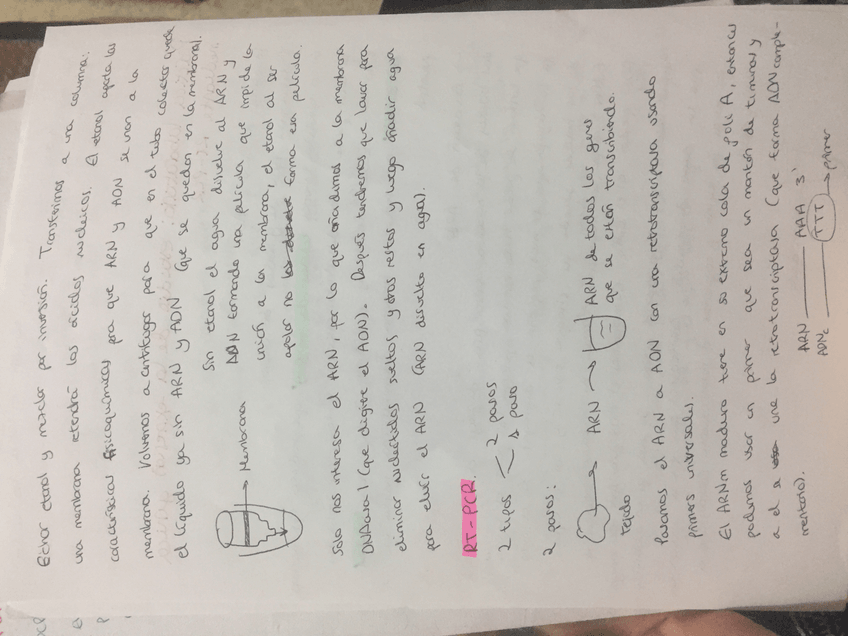 Echar etanol y mezclar por inversión. Transferimos a una columna.
una membrana retendrá los ácidos nucleicos. El etanol aporta las
características fisicoquímicas para que ARN y ADN se unan a la
membrana. Volvemos a centrifugar para que en el tubo colector quede
el líquido ya sin ARN y ADN (que se quedan en la membrana).
Sin etanol el agua disuelve al ARN y
ADN formando una película que impide la
unión a la membrana, el etanol al ser
apolar no forma esa película.
Membrana
Solo nos interesa el ARN, por lo que añadimos a la membrana
DNAasa I (que digiere el ADN). Después tendremos que lavar para
eliminar nucleótidos sueltos y otros restos y luego añadir agua
para eluir el ARN (ARN disuelto en agua).
RT-PCR
2 tipos < 2 pasos
1 paso
2 pasos:
→ ARN → ARN de todos los genes
que se están transcribiendo.
Tejido
Pasamos el ARN a ADN con una retrotranscriptasa usando
primers universales.
El ARNm maduro tiene en su extremo cola de poli A, entonces
podemos usar un primer que sea un montón de timinas y
a el se une la retrotranscriptasa (que forma ADN comple-
mentario).
ARN AAA 3'
ADNc TTT → primer